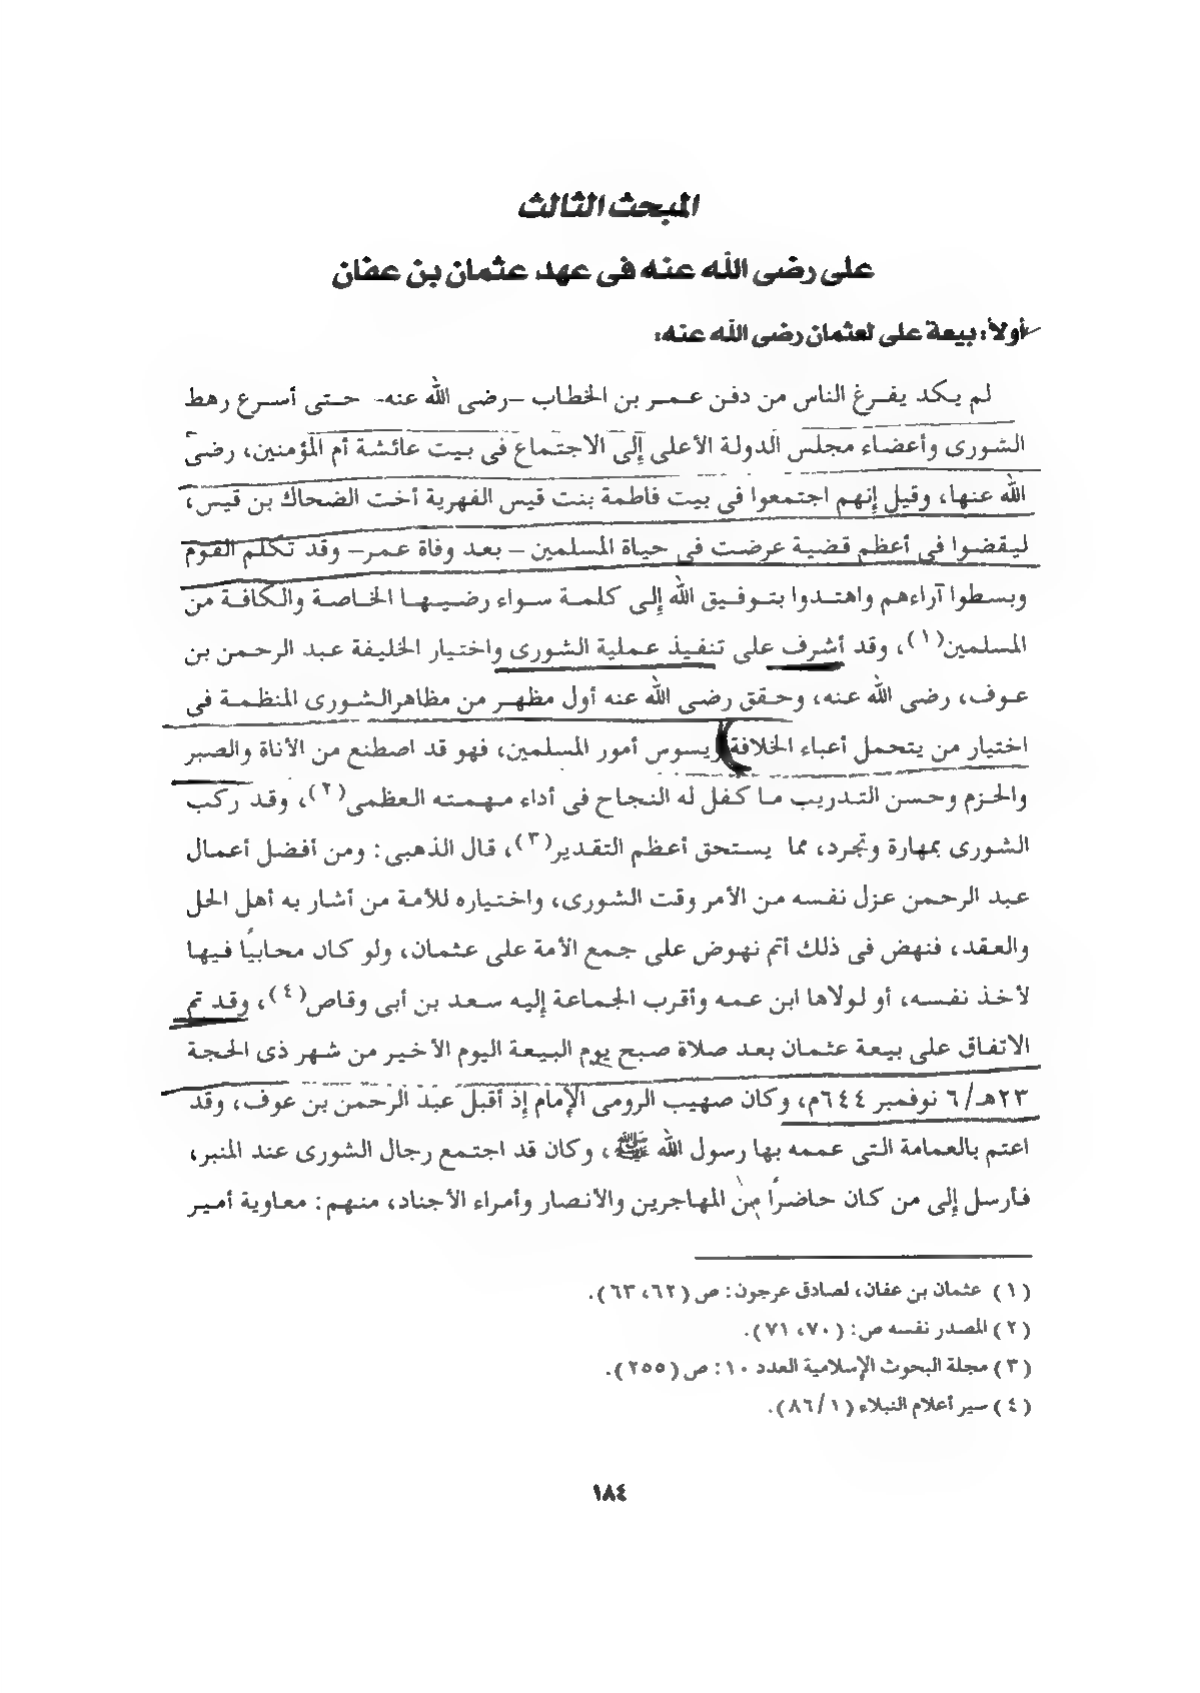 المبحث الثالث
على رضى الله عنه فى عهد عثمان بن عفان
أولاً: بيعة على لعثمان رضى الله عنه:
لم يكد يفرغ الناس من دفن عمر بن الخطاب –رضى الله عنه- حتى أسرع رهط
الشورى وأعضاء مجلس الدولة الأعلى إلى الاجتماع فى بيت عائشة أم المؤمنين، رضى
الله عنها، وقيل إنهم اجتمعوا فى بيت فاطمة بنت قيس الفهرية أخت الضحاك بن قيس،
ليقضوا فى أعظم قضية عرضت فى حياة المسلمين – بعد وفاة عمر– وقد تكلم القوم
وبسطوا آراءهم واهتدوا بتوفيق الله إلى كلمة سواء رضيها الخاصة والكافة من
المسلمين(١)، وقد أشرف على تنفيذ عملية الشورى واختيار الخليفة عبد الرحمن بن
عوف، رضى الله عنه، وحقق رضى الله عنه أول مظهر من مظاهر الشورى المنظمة فى
اختيار من يتحمل أعباء الخلافة ويسوس أمور المسلمين، فهو قد اصطنع من الأناة والصبر
والحزم وحسن التدريب ما كفل له النجاح فى أداء مهمته العظمى(٢)، وقد ركب
الشورى بمهارة وتجرد، مما يستحق أعظم التقدير(٣)، قال الذهبى: ومن أفضل أعمال
عبد الرحمن عزل نفسه من الأمر وقت الشورى، واختياره للأمة من أشار به أهل الحل
والعقد، فنهض فى ذلك أتم نهوض على جمع الأمة على عثمان، ولو كان محابيًا فيها
لأخذ نفسه، أو لولاها ابن عمه وأقرب الجماعة إليه سعد بن أبى وقاص(٤)، وقد تم
الاتفاق على بيعة عثمان بعد صلاة صبح يوم البيعة اليوم الأخير من شهر ذى الحجة
٢٣هـ/٦ نوفمبر ٦٤٤م، وكان صهيب الرومى الإمام إذ أقبل عبد الرحمن بن عوف، وقد
اعتم بالعمامة التى عممه بها رسول الله ﷺ، وكان قد اجتمع رجال الشورى عند المنبر،
فأرسل إلى من كان حاضرًا من المهاجرين والأنصار وأمراء الأجناد، منهم: معاوية أمير
(١) عثمان بن عفان، لصادق عرجون: ص (٦٢، ٦٣).
(٢) المصدر نفسه ص: (٧٠، ٧١).
(٣) مجلة البحوث الإسلامية العدد ١٠: ص (٢٥٥).
(٤) سير أعلام النبلاء (١/ ٨٦).
١٨٤